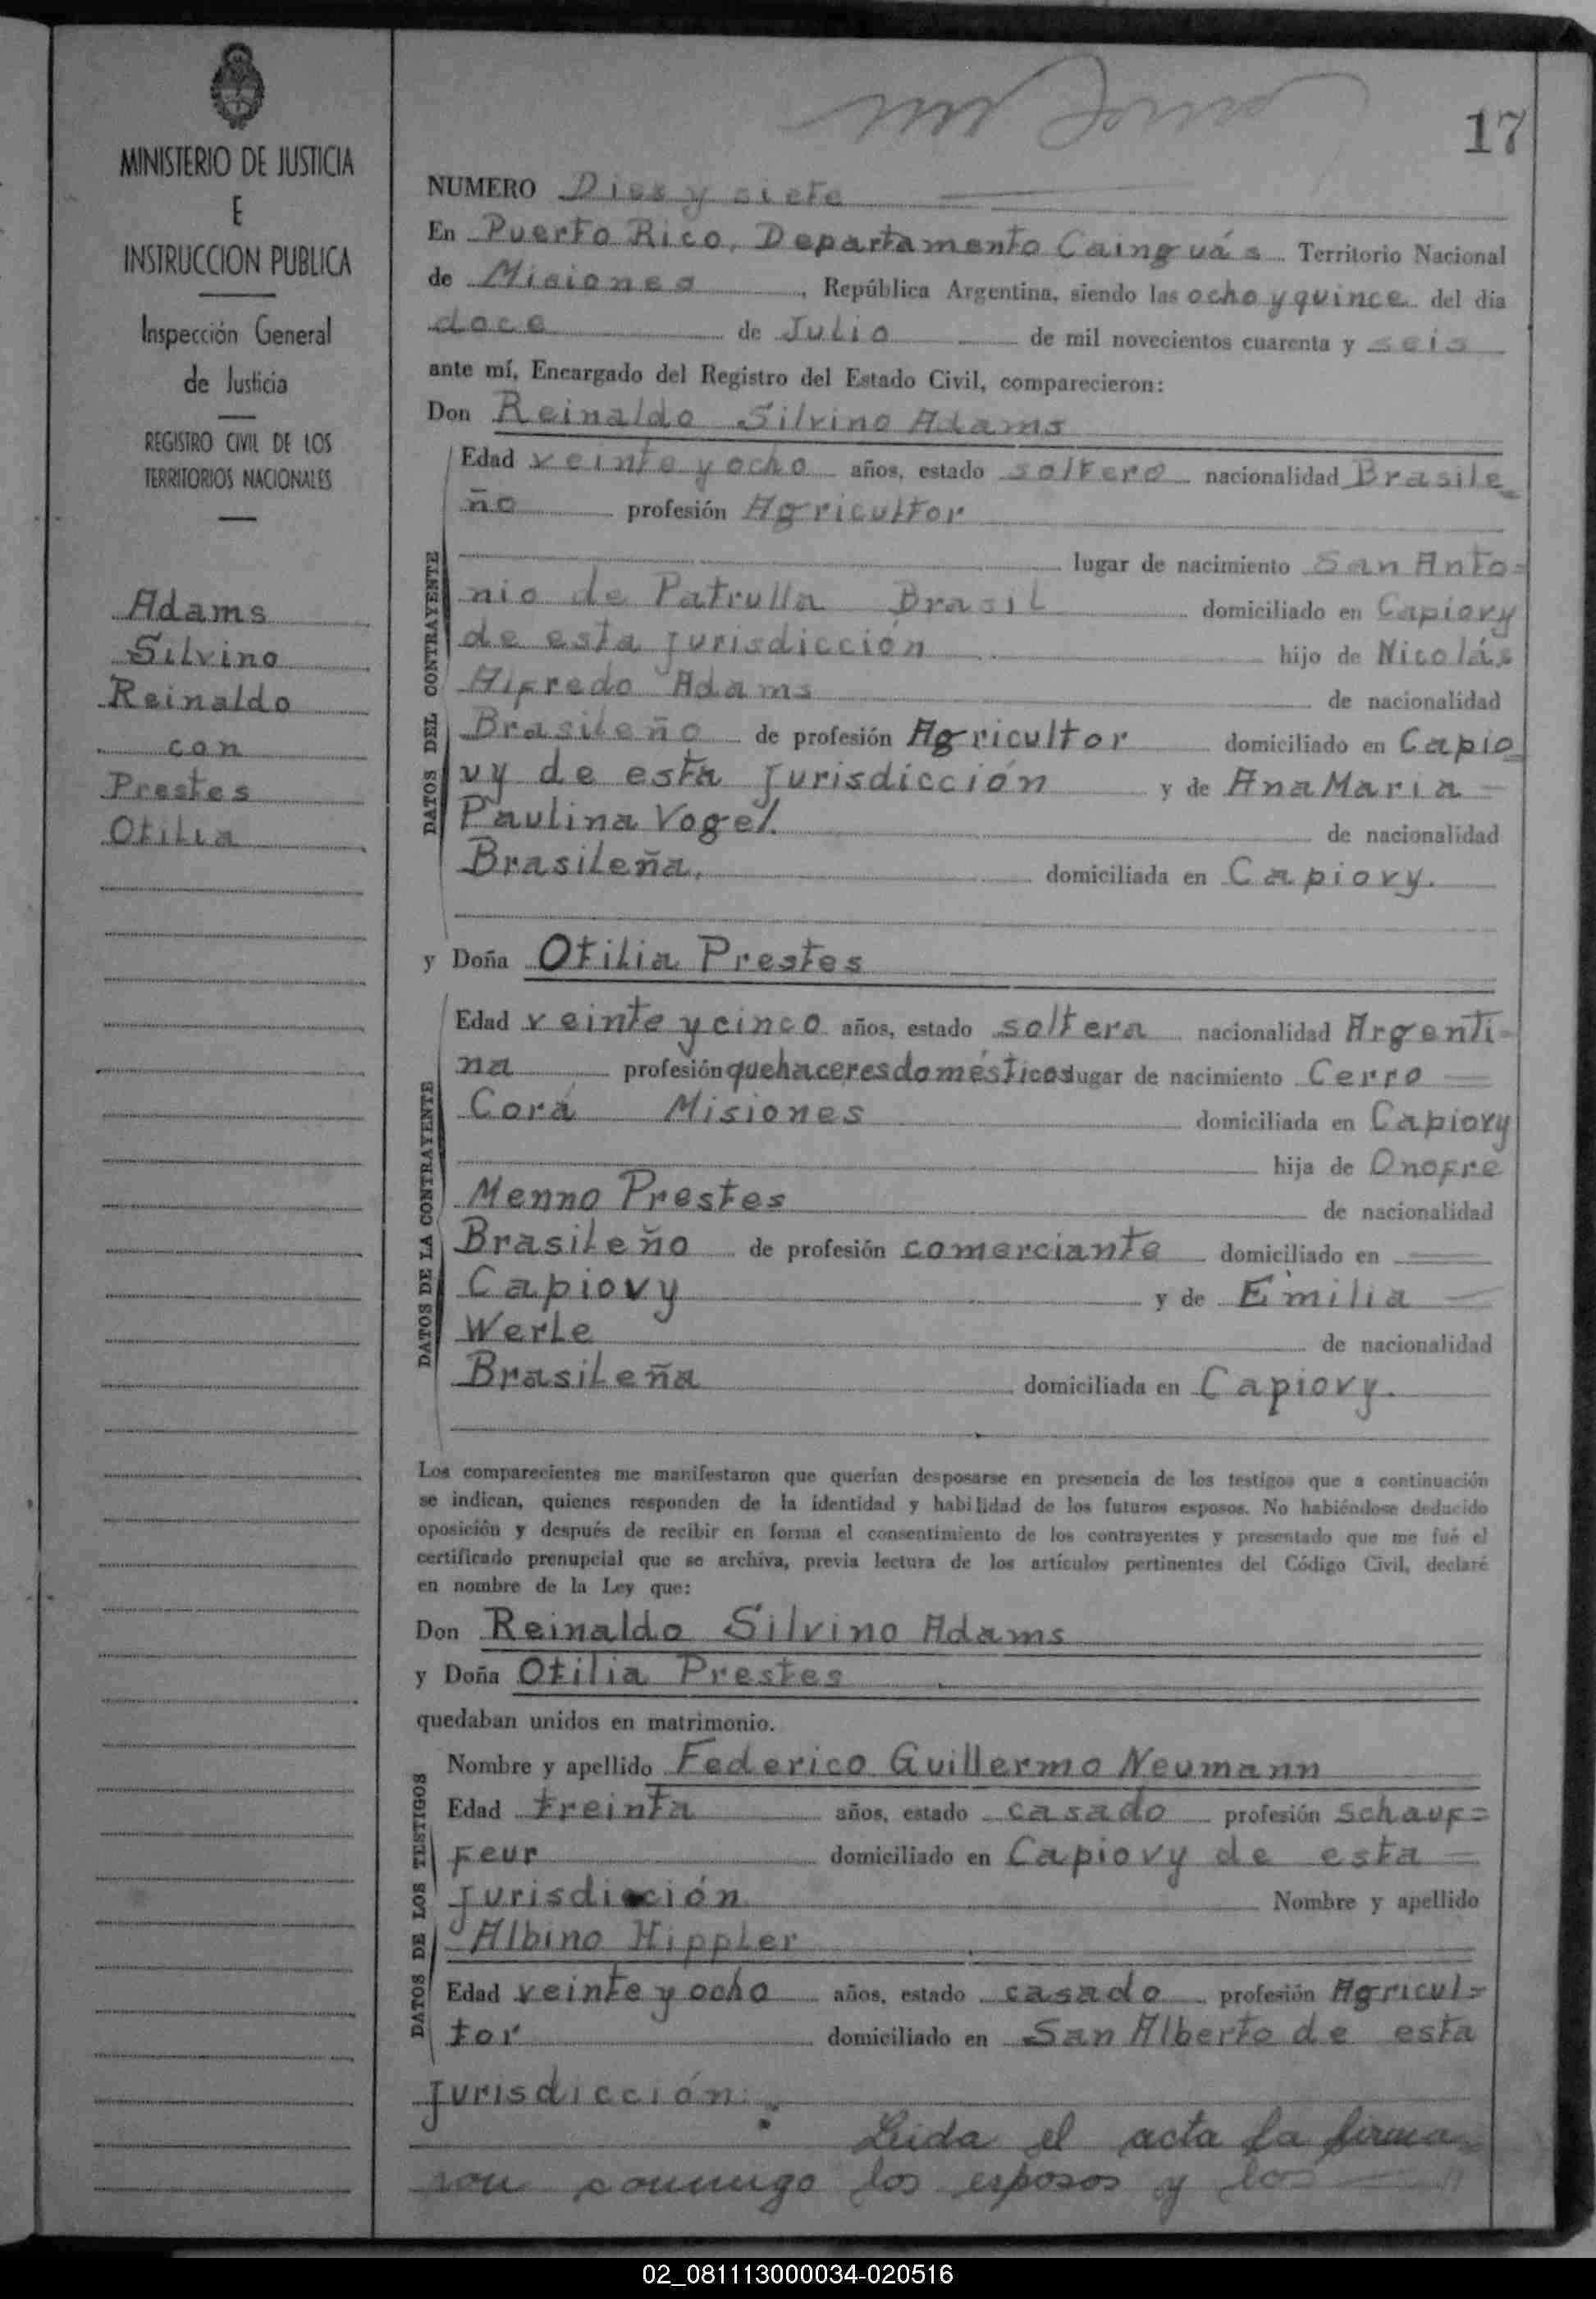 17
MINISTERIO DE JUSTICIA
E
INSTRUCCION PUBLICA
Inspección General
de Justicia
REGISTRO CIVIL DE LOS
TERRITORIOS NACIONALES
Adams
Silvino
Reinaldo
con
Prestes
Otilia
NUMERO Dies y siete
En Puerto Rico, Departamento Cainguás Territorio Nacional
de Misiones, República Argentina, siendo las ocho y quince del día
doce de Julio de mil novecientos cuarenta y seis
ante mí, Encargado del Registro del Estado Civil, comparecieron:
Don Reinaldo Silvino Adams
DATOS DEL CONTRAYENTE
Edad veinte y ocho años, estado soltero nacionalidad Brasile
ño profesión Agricultor
lugar de nacimiento San Anto=
nio de Patrulla Brasil domiciliado en Capiovy
de esta jurisdicción hijo de Nicolás
Alfredo Adams de nacionalidad
Brasileño de profesión Agricultor domiciliado en Capio=
vy de esta jurisdicción y de Ana Maria
Paulina Vogel. de nacionalidad
Brasileña, domiciliada en Capiovy.
y Doña Otilia Prestes
DATOS DE LA CONTRAYENTE
Edad veinte y cinco años, estado soltera nacionalidad Argenti=
na profesión quehaceres domésticos lugar de nacimiento Cerro
Corá Misiones domiciliada en Capiovy
hija de Onofre
Menno Prestes de nacionalidad
Brasileño de profesión comerciante domiciliado en
Capiovy y de Emilia
Werle de nacionalidad
Brasileña domiciliada en Capiovy.
Los comparecientes me manifestaron que querían desposarse en presencia de los testigos que a continuación
se indican, quienes responden de la identidad y habilidad de los futuros esposos. No habiéndose deducido
oposición y después de recibir en forma el consentimiento de los contrayentes y presentado que me fué el
certificado prenupcial que se archiva, previa lectura de los artículos pertinentes del Código Civil, declaré
en nombre de la Ley que:
Don Reinaldo Silvino Adams
y Doña Otilia Prestes
quedaban unidos en matrimonio.
DATOS DE LOS TESTIGOS
Nombre y apellido Federico Guillermo Neumann
Edad treinta años, estado casado profesión schauf=
feur domiciliado en Capiovy de esta
jurisdicción Nombre y apellido
Albino Hippler
Edad veinte y ocho años, estado casado profesión Agricul=
tor domiciliado en San Alberto de esta
jurisdicción.
Leida el acta la firma=
ron conmigo los esposos y los
02_081113000034-020516